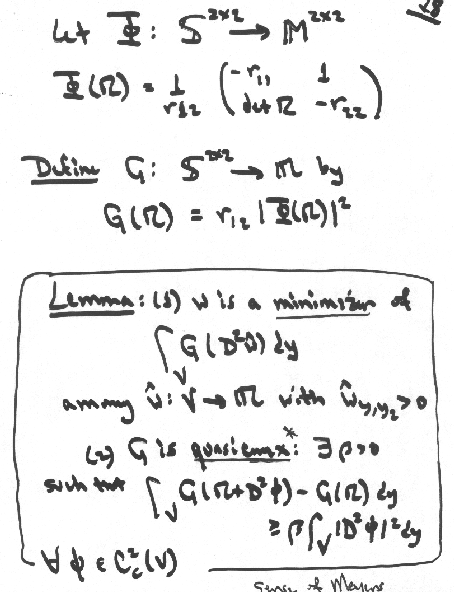 Let Φ: S^{2x2} → M^{2x2}
Φ(R) = 1/r12 ( -r11 1
det R -r22 )
Define G: S^{2x2} → R by
G(R) = r12 |Φ(R)|^2
Lemma: (1) w is a minimizer of
∫_V G(D^2ŵ) dy
among ŵ: V → R with ŵ_{y1y2} > 0
(2) G is quasiconvex*: ∃ β>0
such that ∫_V G(R+D^2φ) - G(R) dy
≥ β ∫_V |D^2φ|^2 dy
∀ φ ∈ C_c^2(V)
sense of Meyers